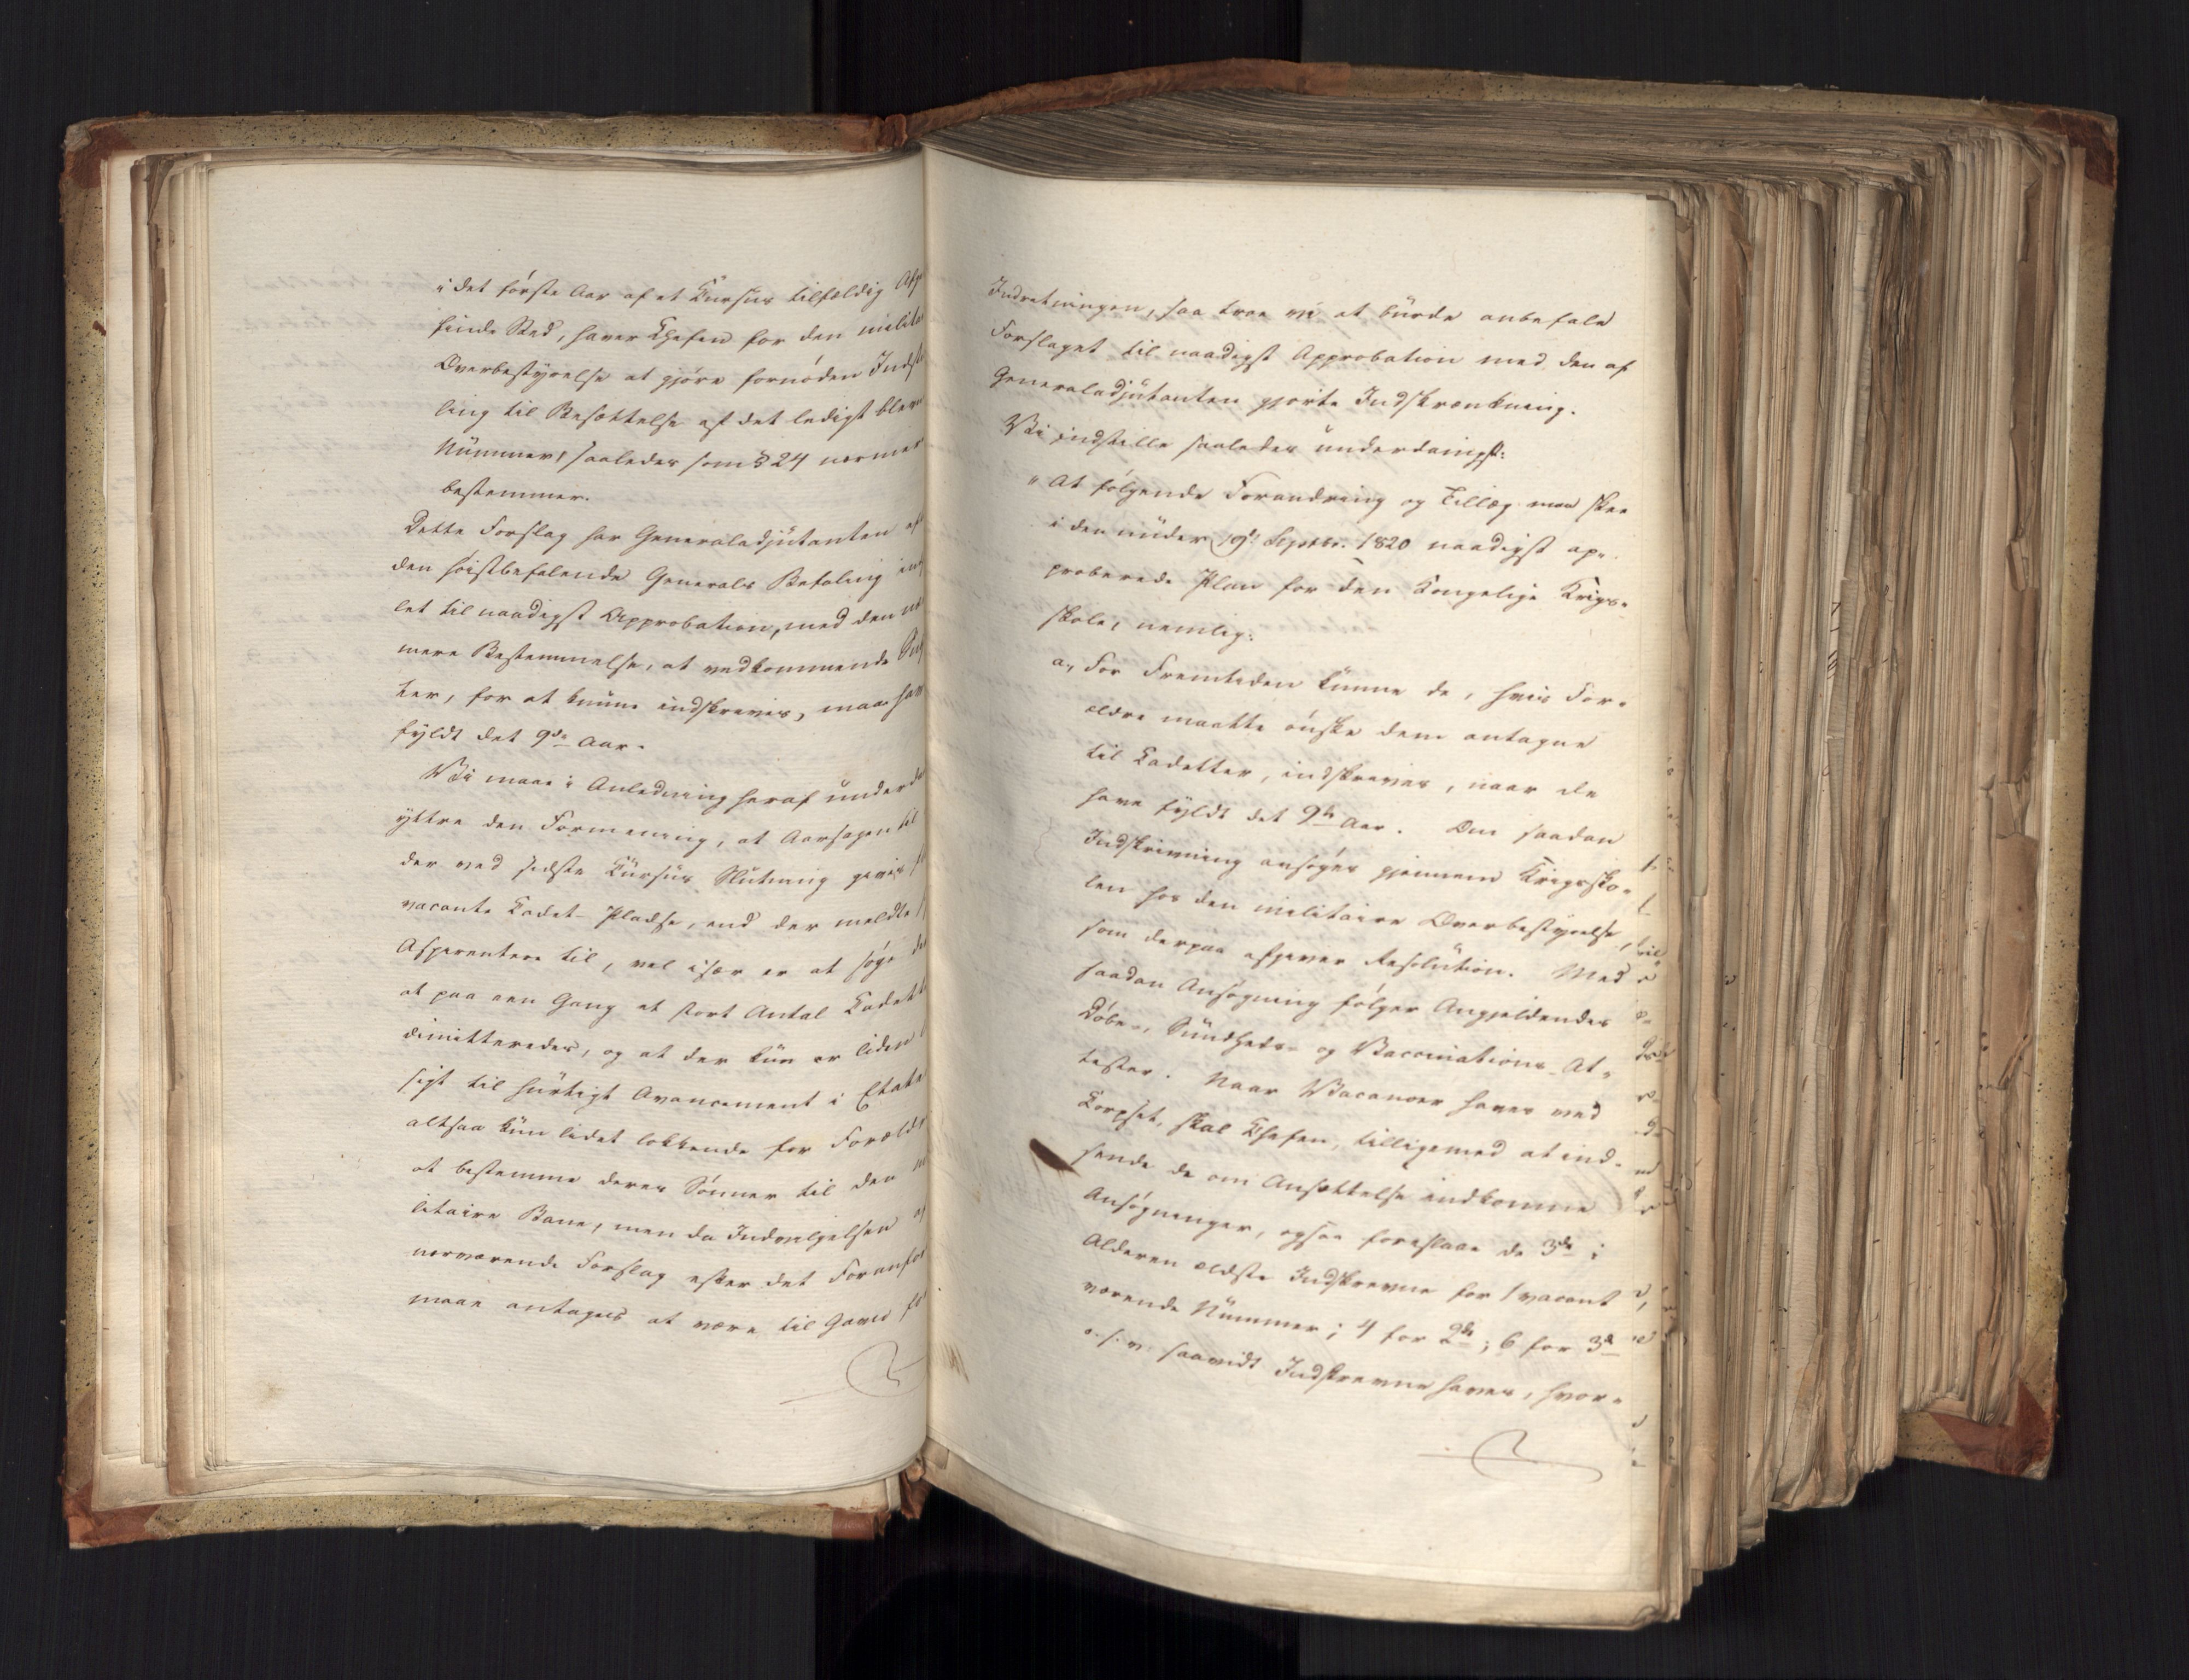 i det første Aar af et Kursus tilfældig Afg
finde Sted, haver Chefen for den milita
Overbestyrelse at gjøre fornøden Indst
ling til Besættelse af det ledigt blevn
Nummer, saaledes som § 24 nærmer
bestemmer.
Dette Forslag har Generaladjutanten eft
den høistbefalende Generals Befaling ind
let til naadigst Approbation, med den næ
mere Bestemmelse, at vedkommende
ter, for at kunne indskrives, maae hav
fyldt det 9de Aar.
Vi maae i Anledning heraf underd
yttre den Formening, at Aarsagen til
der ved sidste Kursus Slutning gaves fl
vacante Kadet-Pladse, end der meldte s
Aspirantere til, vel især er at søge de
at paa een Gang et stort Antal Kadett
dimitteredes, og at der kun er liden
sigt til hurtigt Avancement i Etate
altsaa kun lidet lokkende for Forældr
at bestemme deres Sønner til den m
litaire Bane, men da Indvilgelsen af
nærværende Forslag efter det Foranfør
maae antages at være til Gavn for
Indretningen, saa troe vi at burde anbefale
Forslaget til naadigst Approbation med den af
Generaladjutanten gjorte Indskrænkning.
Vi indstille saaledes underdanigst:
"At følgende Forandring og Tillæg maa skee
i den under 19de Septbr. 1820 naadigst ap-
proberede Plan for den Kongelige Krigs-
skole, nemlig:
a, For Fremtiden kunne de, hvis For-
ældre maatte ønske dem antagne
til Kadetter, indskrives, naar de
have fyldt det 9de Aar. Om saadan
Indskrivning ansøges gjennem Krigssko-
len hos den militaire Overbestyrelse,
som derpaa afgiver Resolution. Med
saadan Ansøgning følger Angjeldendes
Døbe-, Sundheds- og Vaccinations-At-
tester. Naar Vacancer haves ved
Korpset, skal Chefen, tilligemed at ind-
sende de om Ansættelse indkomne
Ansøgninger, ogsaa foreslaae de 3de i
Alderen ældste Indskrevne for 1 vacant
værende Nummer; 4 for 2de; 6 for 3de
o. s. v. saavidt Indskrevne haves, hvor-